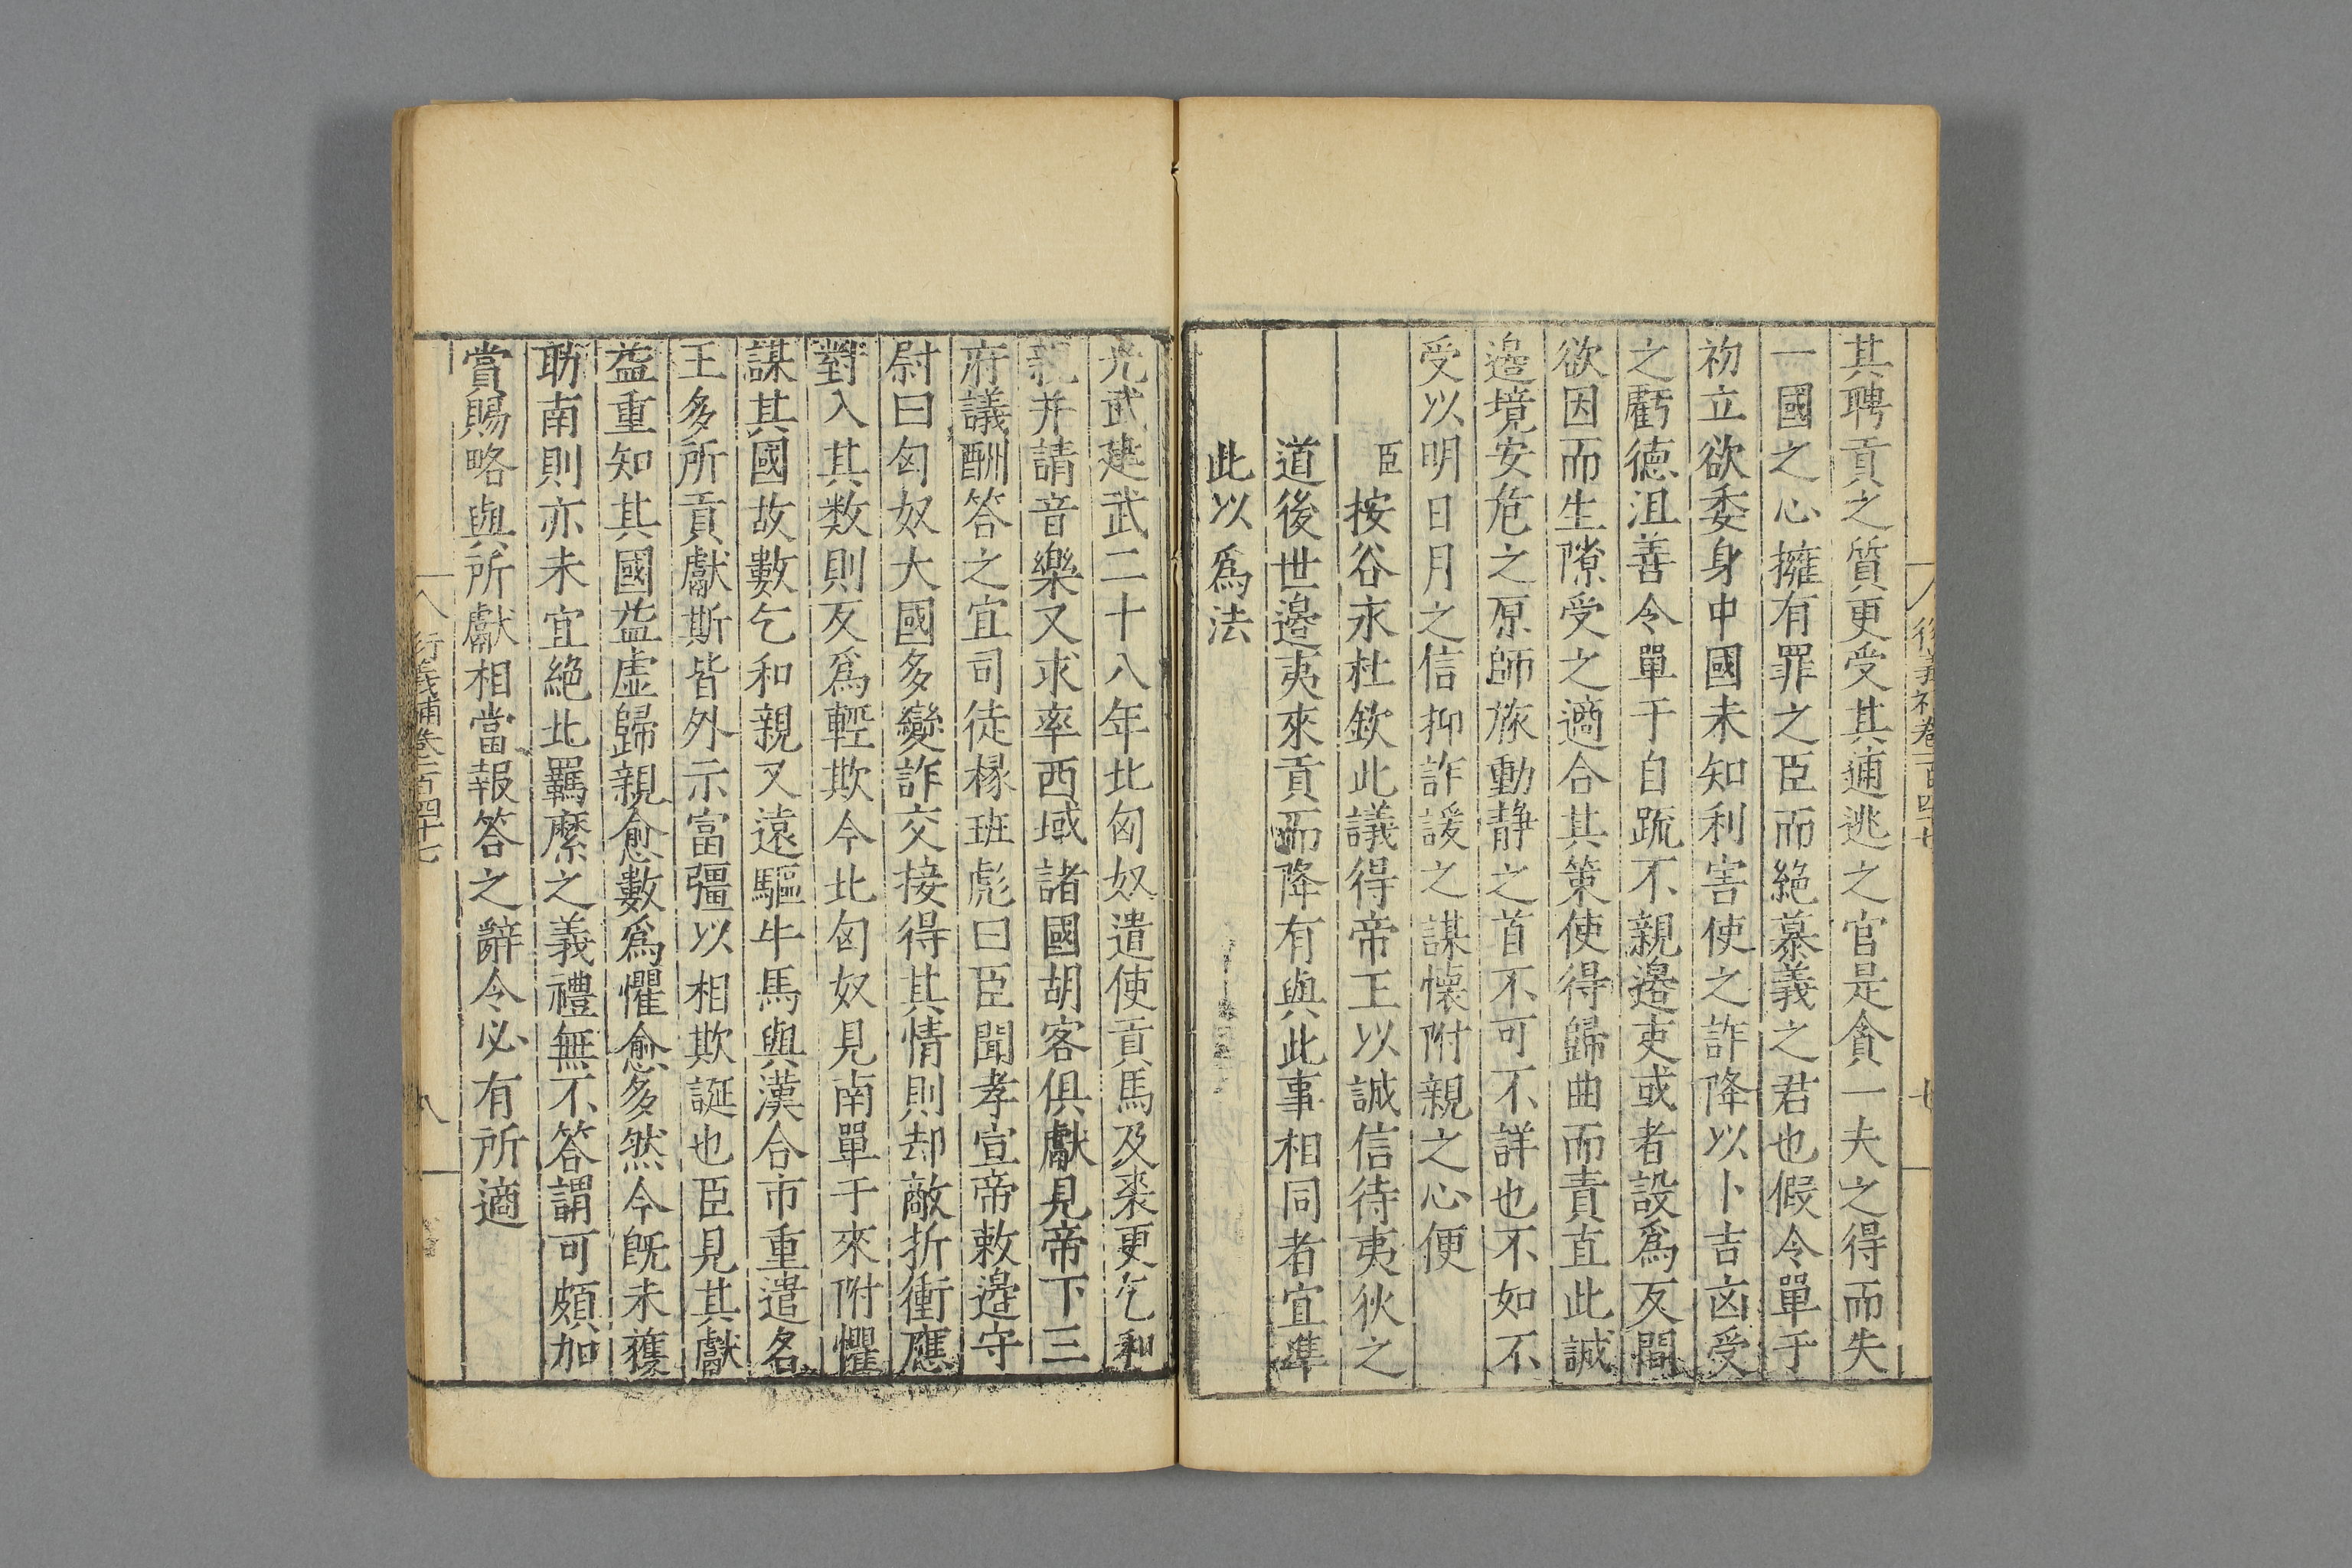 其聘貢之質更受其逋逃之官是貪一夫之得而失
一國之心擁有罪之臣而絶慕義之君也假令單于
初立欲委身中國未知利害使之詐降以卜吉凶受
之虧德沮善令單于自䟽不親邉吏或者設爲反間
欲因而生隙受之適合其策使得歸曲而責直此誠
邉境安危之原師旅動静之首不可不詳也不如不
受以明日月之信抑詐諼之謀懷附親之心便
臣按谷永杜欽此議得帝王以誠信待夷狄之
道後世邉夷來貢而降有與此事相同者宜凖
此以爲法
光武建武二十八年北匈奴遣使貢馬及裘更乞和
親并請音樂又求率西域諸國胡客俱獻見帝下三
府議酬答之宜司徒椽班彪曰臣聞孝宣帝敕邉守
尉曰匈奴大國多變詐交接得其情則却敵折衝應
對入其数則反爲輕欺今北匈奴見南單于來附懼
謀其國故數乞和親又遠驅牛馬與漢合市重遣名
王多所貢獻斯皆外示富彊以相欺誕也臣見其獻
益重知其國益虚歸親愈數爲懼愈多然今既未獲
助南則亦未宜絶北羈縻之義禮無不答謂可頗加
賞賜略與所獻相當報答之辭令必有所適
衍義補卷一百四十七
八